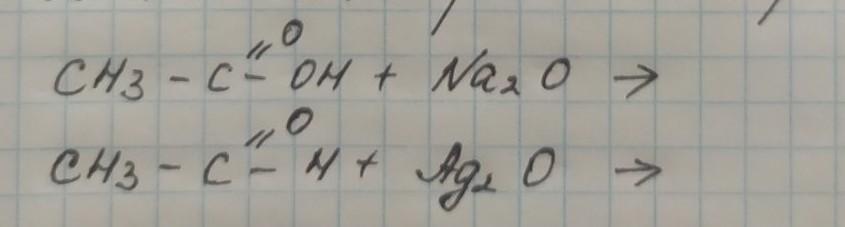 CH3 - C =O - OH + Na2 O →
CH3 - C =O - H + Ag2 O →